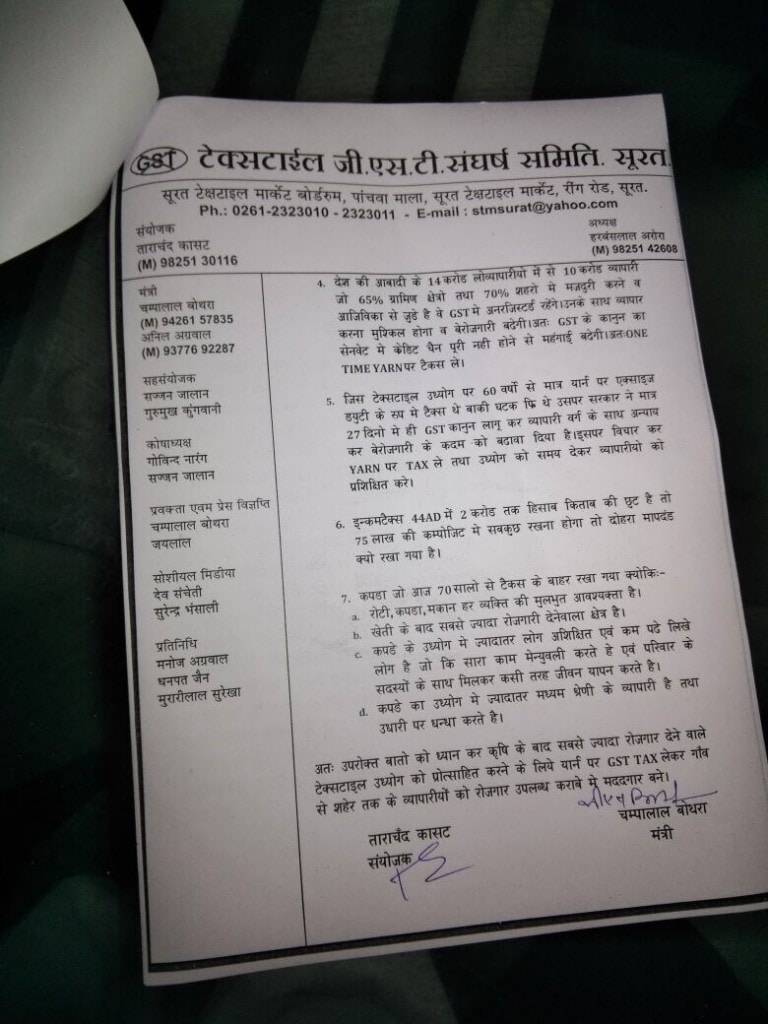 GST टेक्सटाईल जी.एस.टी.संघर्ष समिति. सूरत.
सूरत टेक्षटाइल मार्केट बोर्डरुम, पांचवा माला, सूरत टेक्षटाइल मार्केट, रींग रोड, सूरत.
Ph.: 0261-2323010 - 2323011 - E-mail : stmsurat@yahoo.com
संयोजक
ताराचंद कासट
(M) 98251 30116
अध्यक्ष
हरबंसलाल अरोरा
(M) 98251 42608
मंत्री
चम्पालाल बोथरा
(M) 94261 57835
अनिल अग्रवाल
(M) 93776 92287
सहसंयोजक
सज्जन जालान
गुरुमुख कुंगवानी
कोषाध्यक्ष
गोविन्द नारंग
सज्जन जालान
प्रवक्ता एवम प्रेस विज्ञप्ति
चम्पालाल बोथरा
जयलाल
सोशीयल मिडीया
देव संचेती
सुरेन्द्र भंसाली
प्रतिनिधि
मनोज अग्रवाल
धनपत जैन
मुरारीलाल सुरेखा
4. देश की आबादी के 14 करोड लोव्यापारीयो में से 10 करोड व्यापारी
जो 65% ग्रामिण क्षेत्रो तथा 70% शहरो मे मजदुरी करने व
आजिविका से जुडे है वे GST मे अनरजिस्टर्ड रहेंगे।उनके साथ व्यापार
करना मुश्किल होगा व बेरोजगारी बढेगी।अतः GST के कानुन का
सेनवेट मे केडिट चैन पूरी नही होने से महंगाई बढेगी।अतःONE
TIME YARN पर टैकस ले।
5. जिस टेक्सटाइल उध्योग पर 60 वर्षो से मात्र यार्न पर एक्साइज
डयुटी के रुप मे टैक्स थे बाकी घटक फ्रि थे उसपर सरकार ने मात्र
27 दिनो मे ही GST कानुन लागू कर व्यापारी वर्ग के साथ अन्याय
कर बेरोजगारी के कदम को बढावा दिया है।इसपर विचार कर
YARN पर TAX ले तथा उध्योग को समय देकर व्यापारीयो को
प्रशिक्षित करे।
6. इन्कमटैक्स 44AD में 2 करोड तक हिसाब किताब की छुट है तो
75 लाख की कम्पोजिट मे सबकुछ रखना होगा तो दोहरा मापदंड
क्यो रखा गया है।
7. कपडा जो आज 70 सालो से टैकस के बाहर रखा गया क्योकिः-
a. रोटी,कपडा,मकान हर व्यक्ति की मुलभुत आवश्यक्ता है।
b. खेती के बाद सबसे ज्यादा रोजगारी देनेवाला क्षेत्र है।
c. कपडे के उध्योग मे ज्यादातर लोग अशिक्षित एवं कम पढे लिखे
लोग है जो कि सारा काम मेन्युवली करते हे एवं परिवार के
सदस्यों के साथ मिलकर कसी तरह जीवन यापन करते है।
d. कपडे का उध्योग मे ज्यादातर मध्यम श्रेणी के व्यापारी है तथा
उधारी पर धन्धा करते है।
अतः उपरोक्त बातो को ध्यान कर कृषि के बाद सबसे ज्यादा रोजगार देने वाले
टेक्सटाइल उध्योग को प्रोत्साहित करने के लिये यार्न पर GST TAX लेकर गाँव
से शहेर तक के व्यापारीयों को रोजगार उपलब्ध कराबे मे मददगार बने।
ताराचँद कासट
संयोजक
चम्पालाल बोथरा
मंत्री